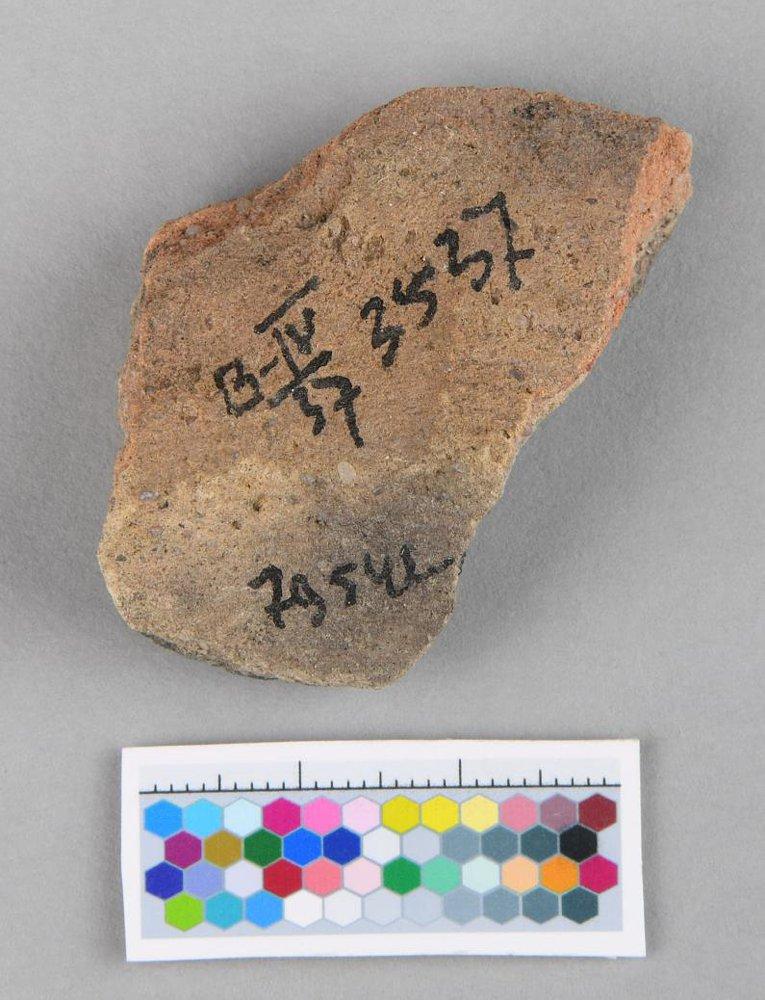 B-IV
37
3537
79542